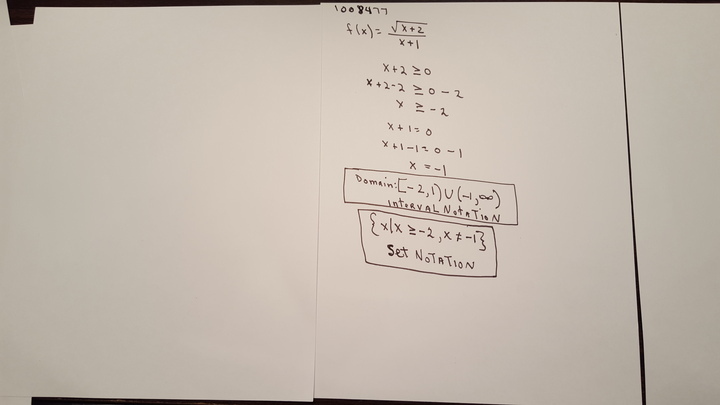 1008477
f(x)= √x+2 / x+1
x+2 ≥ 0
x+2-2 ≥ 0-2
x ≥ -2
x+1=0
x+1-1=0-1
x = -1
Domain: [-2,1)∪(-1,∞)
INTERVAL NOTATION
{x|x ≥ -2, x ≠ -1}
Set NOTATION